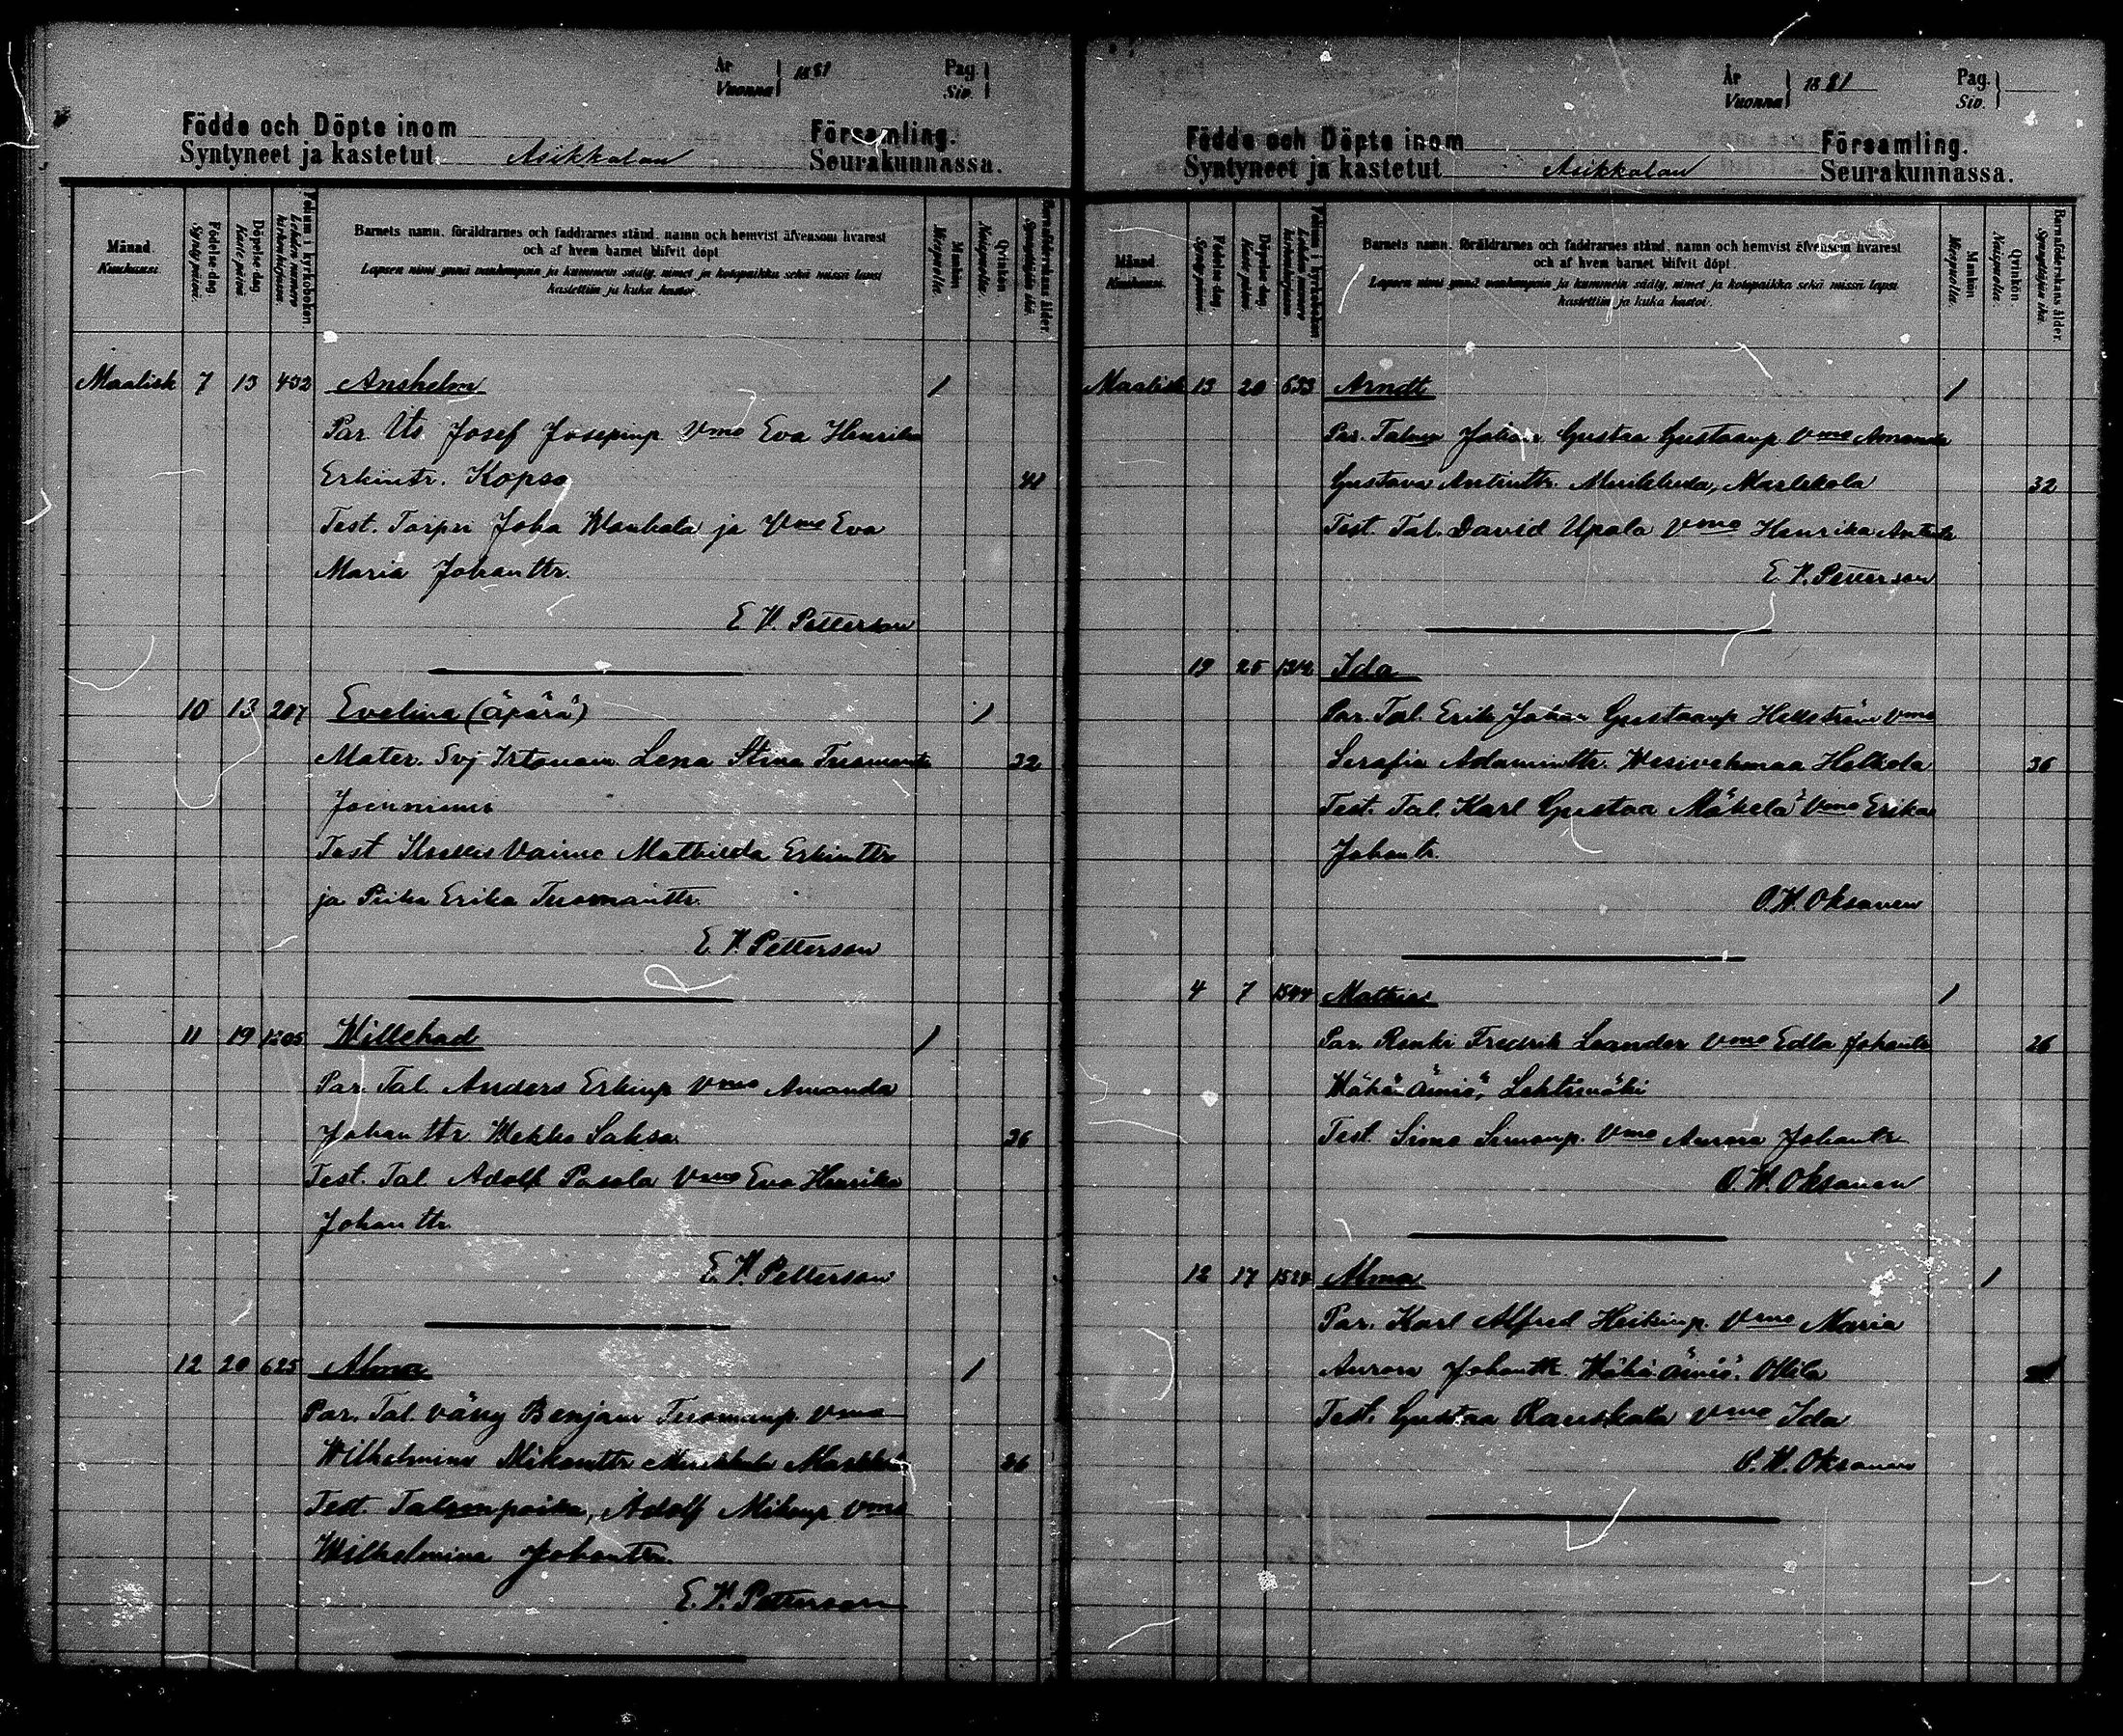 År
Vuonna 1881
Pag.
Siv.
Födde och Döpte inom Församling.
Syntyneet ja kastetut Asikkalan Seurakunnassa.
Månad.
Kuukausi.
Födelse-dag.
Syntymäpäivä.
Döpelse-dag.
Kaste-päivä.
Folium i kyrkoboken.
Lehden numero kirkonkirjassa
Barnets namn, föräldrarnes och faddrarnes stånd, namn och hemvist äfvensom hvarest
och af hvem barnet blifvit döpt
Lapsen nimi ynnä vanhempain ja kummein sääty, nimet ja kotopaikka sekä missä lapsi
kastettiin ja kuka kastoi.
Mankön
Miespuolia.
Qvinkön.
Naispuolia.
Barnaföderskans ålder.
Synnyttäjän ikä.
Maalisk 7 13 Anshelm 1
Par. Its. Josef Josepinp. Vmo Eva Henrika
Erkintr. Kopso 41
Test. Torpri Joha Wanhala ja Vmo Eva
Maria Johantr.
E. W. Petterson
10 13 207 Evelina (äpärä) 1
Mater. Lena Stina 32
Test Vaimo Mathilda Erkinttr
ja Piika Erika Tuomanttr.
E. W. Petterson
11 19 1205 Willehad 1
Par. Tal. Anders Erkinp Vmo Amanda
Johanttr Wekko Saksa 36
Test. Tal Adolf Pasola Vmo Eva Henrika
Johanttr
E. W. Petterson
12 20 625 Alma 1
Par. Tal. vävy Benjam Tuomanp. Vmo
Wilhelmina Mikonttr 26
Test. Talonpoika, Adolf Mikonp. Vmo
Wilhelmina Johanttr.
E. W. Petterson
År
Vuonna 1881
Pag.
Siv.
Födde och Döpte inom Församling.
Syntyneet ja kastetut Asikkalan Seurakunnassa.
Månad.
Kuukausi.
Födelse-dag.
Syntymäpäivä.
Döpelse-dag.
Kaste-päivä.
Folium i kyrkoboken
Lehden numero kirkonkirjassa
Barnets namn, föräldrarnes och faddrarnes stånd, namn och hemvist äfvensom hvarest
och af hvem barnet blifvit döpt.
Lapsen nimi ynnä vanhempain ja kummein sääty, nimet ja kotopaikka sekä missä lapsi
kastettiin ja kuka kastoi.
Mankön
Miespuolia.
Qvinkön.
Naispuolia.
Barnaföderskans ålder.
Synnyttäjän ikä.
Maalisk 13 20 633 Arndt 1
Par. Johan Gustaa Gustaanp Vmo Amanda
Gustava Antinttr. 32
Test. Tal. David Upola Vmo Henrika
E. W. Petterson
19 25 Ida
Par. Tal. Erik Johan Gustaanp Hellström Vmo
Serafia Adaminttr. Wesivehmaa Halkola 36
Test. Tal. Karl Gustaa Mäkelä Vmo Erika
Johantr.
O. W. Oksanen
4 7 1544 Mathias 1
Par. Renki Fredrik Leander Vmo Edla Johantr 26
Wähä Äiniö, Lehtimäki
Test. Simo Simonp. Vmo Aurora Johantr
O. W. Oksanen
12 17 1524 Alma 1
Par. Karl Alfred Heikinp. Vmo Maria
Aurora Johanttr. Wähä Äiniö. Ollila
Test. Gustaa Rauskala Vmo Ida
O. W. Oksanen